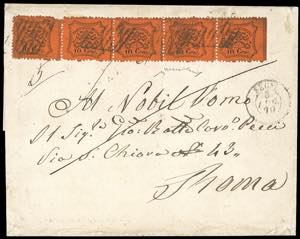 10 CENT. 10 CENT. 10 CENT. 10 CENT.
Al Nobil Uomo
Il Sigr Gio: Batta Cav. Pecci
Via S. Chiara 43
Roma